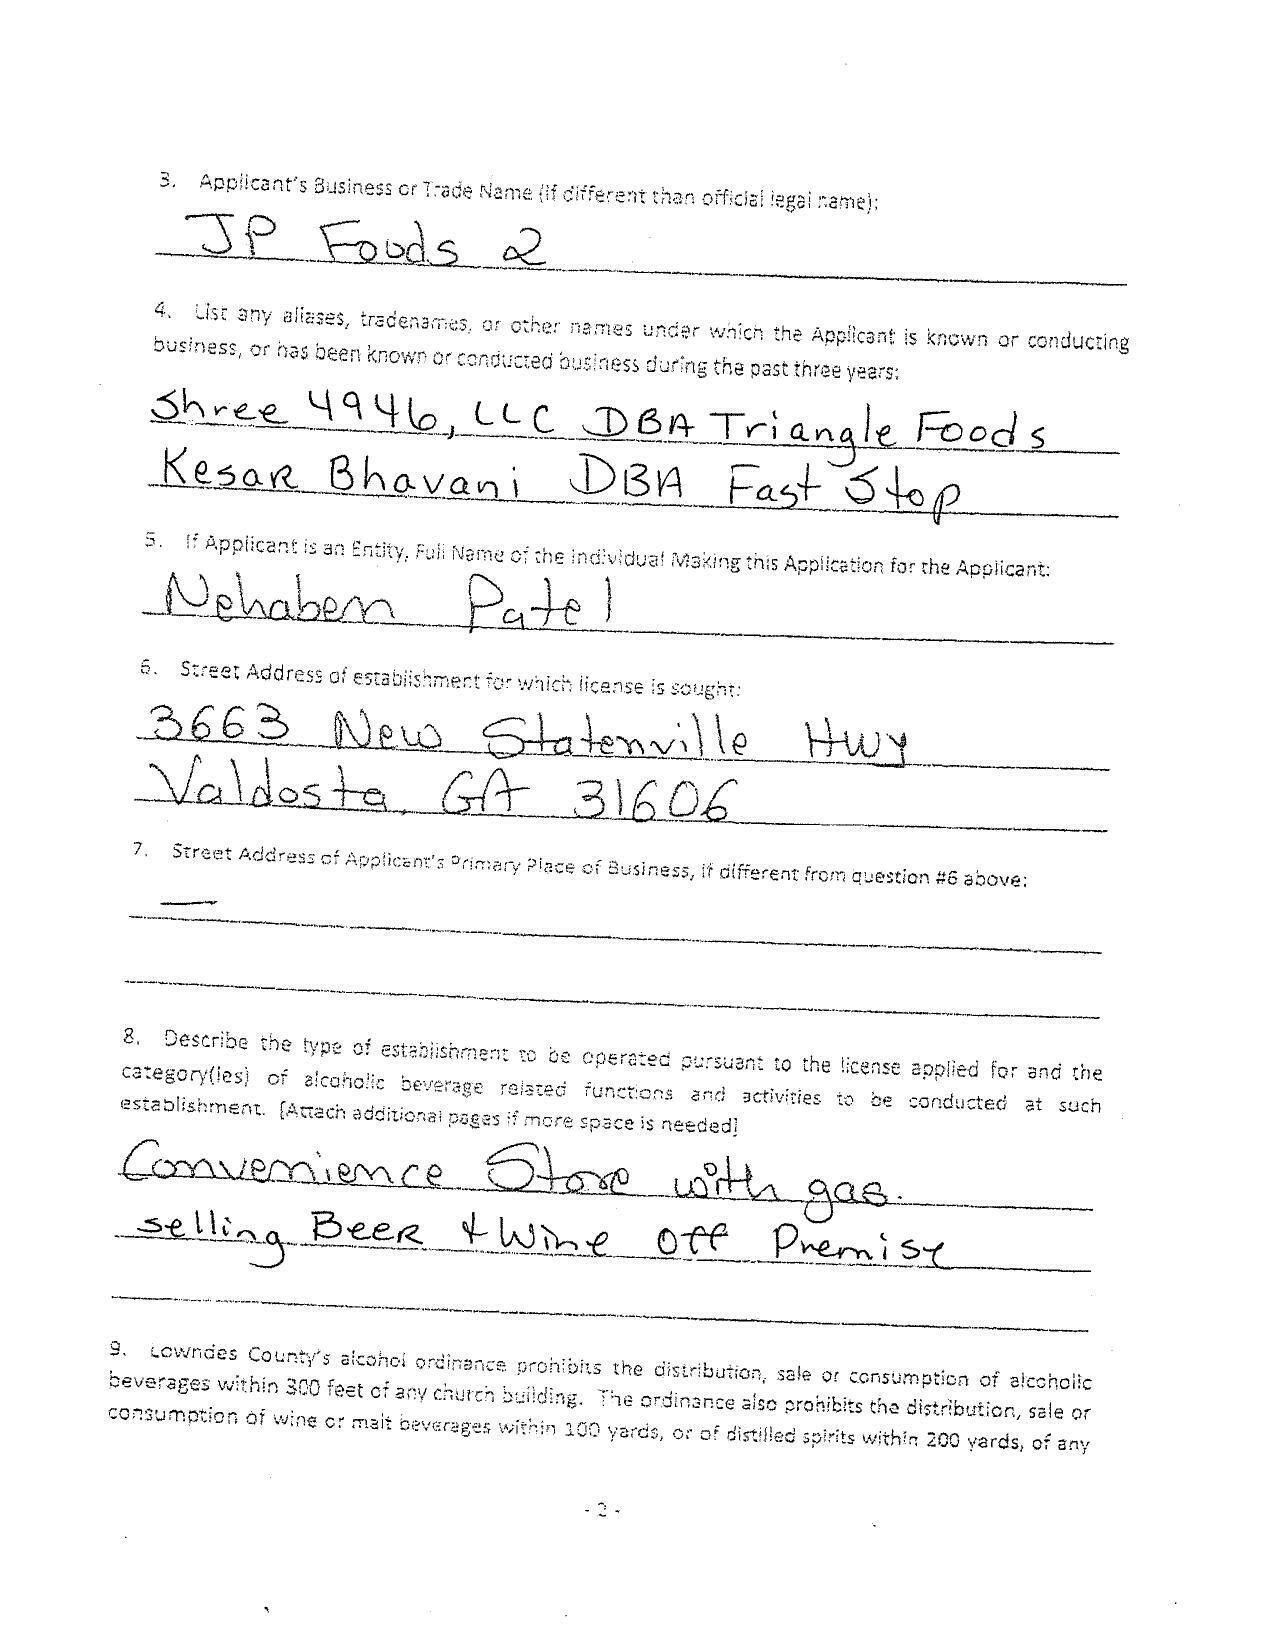 3. Applicant's Business or Trade Name (if different than official legal name):
JP Foods 2
4. List any aliases, tradenames, or other names under which the Applicant is known or conducting
business, or has been known or conducted business during the past three years:
Shree 4946, LLC DBA Triangle Foods
Kesar Bhavani DBA Fast Stop
5. If Applicant is an Entity, Full Name of the Individual Making this Application for the Applicant:
Nehaben Patel
6. Street Address of establishment for which license is sought:
3663 New Statenville Hwy
Valdosta, GA 31606
7. Street Address of Applicant's Primary Place of Business, if different from question #6 above:
—
8. Describe the type of establishment to be operated pursuant to the license applied for and the
category(ies) of alcoholic beverage related functions and activities to be conducted at such
establishment. [Attach additional pages if more space is needed]
Convenience Store with gas.
selling Beer + Wine Off Premise
9. Lowndes County's alcohol ordinance prohibits the distribution, sale or consumption of alcoholic
beverages within 300 feet of any church building. The ordinance also prohibits the distribution, sale or
consumption of wine or malt beverages within 100 yards, or of distilled spirits within 200 yards, of any
- 2 -